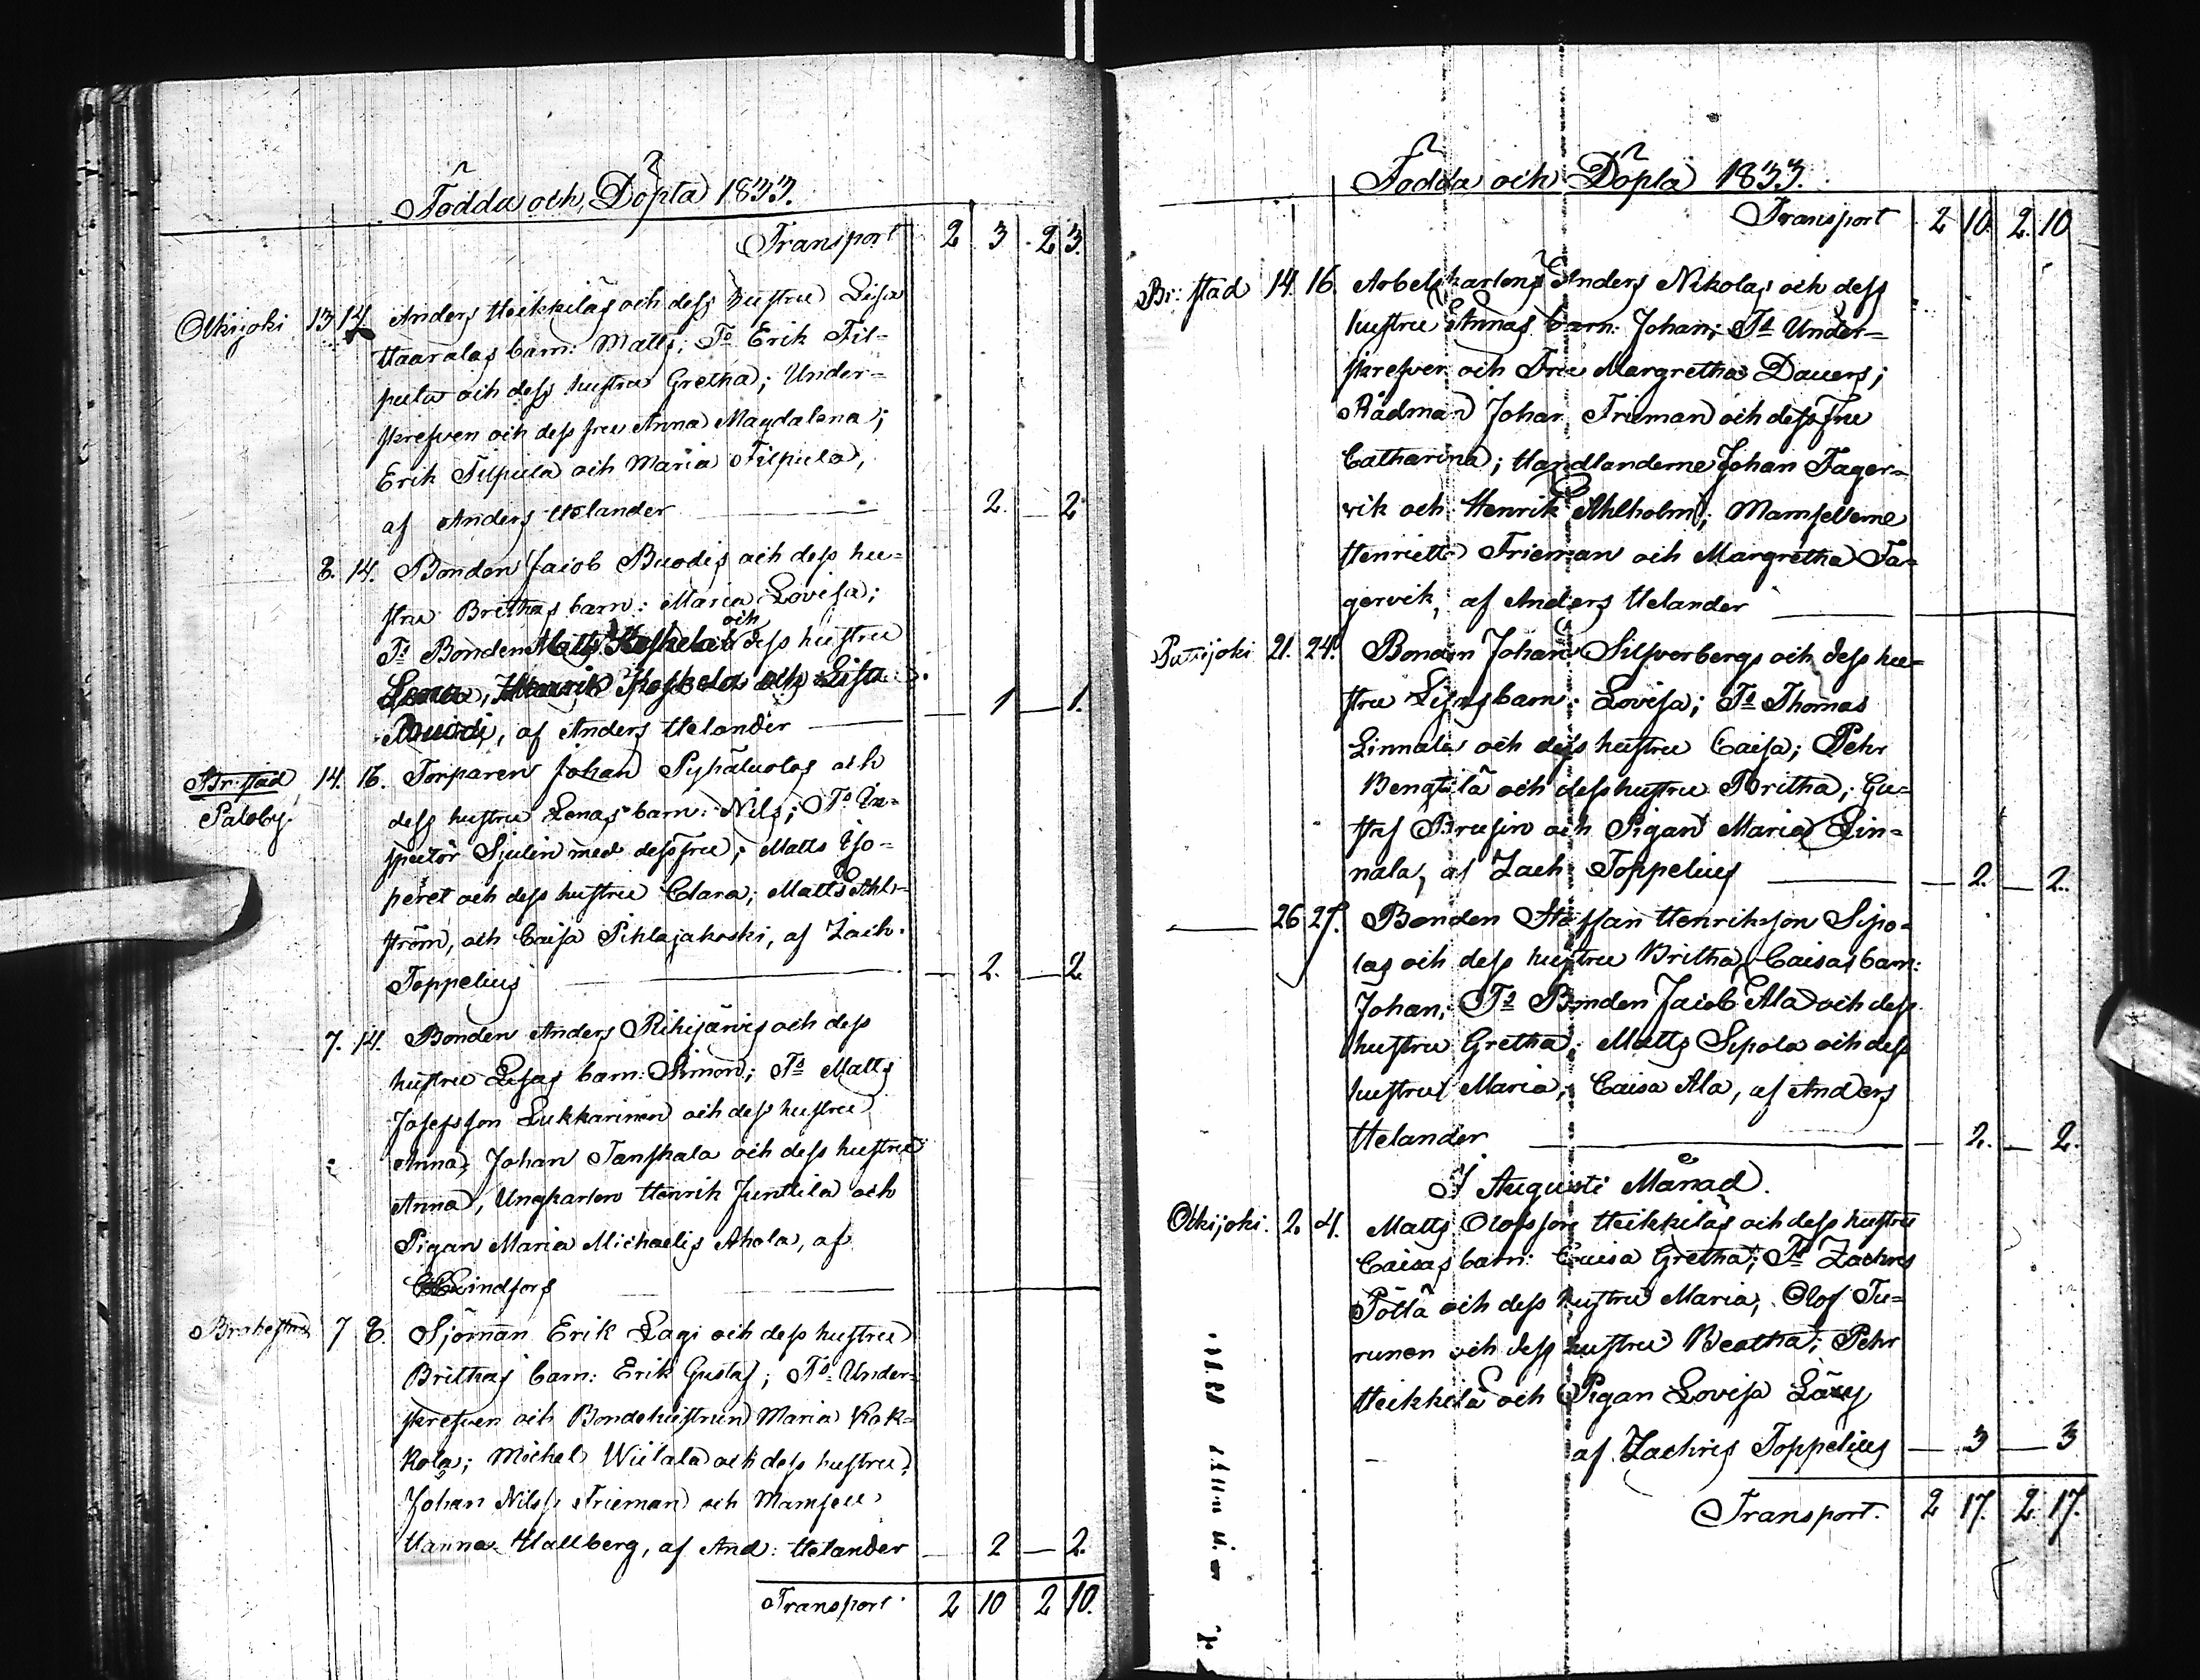 Födda och Döpta 1833.
Transport 2 3 2 3.
Olkijoki 13 14 Anders Heikkiläs och dess hustru Lisa
Haaralas barn: Matts; Ts Erik Fil-
pula och dess hustru Gretha; Under-
skrefven och dess fru Anna Magdalena;
Erik Filpula och Maria Filpula,
af Anders Helander — 2. — 2
8. 14. Bonden Jacob Buodis och dess hu-
stru Brithas barn: Maria Lovisa;
Ts Bonden Matts Koskela och dess hustru
Lena, Henrik Koskela och Lisa
Buodi, af Anders Helander — 1 — 1.
Br: stad 14. 16. Torparen Johan Pyhäluotos och
Saloby. dess hustru Lenas barn: Nils; Ts In-
spector Sjulin med dess fru; Matts Iso-
peret och dess hustru Clara; Matts Ahl-
ström, och Caisa Pihlajakoski, af Zach.
Toppelius — 2. — 2
7. 14. Bonden Anders Pihijärvis och dess
hustru Lisas barn: Simon; Ts Matts
Josefsson Lukkarinen och dess hustru
Anna, Johan Tanskala och dess hustru
Anna, Ungkarlen Henrik Junttila och
Pigan Maria Michaelis Ahola, af
Lindfors
Brahestad 7 8. Sjöman Erik Lagi och dess hustru
Brithas barn: Erik Gustaf; Ts Under-
skrefven och Bondehustrun Maria Kok-
kola; Michel Wiitala och dess hustru,
Johan Nilss Frieman och Mamsell
Hanna Hallberg, af And: Helander — 2 — 2.
Transport 2 10 2 10.
Födda och Döpta 1833.
Transport 2 10. 2. 10
Br: stad 14. 16. Arbetskarlens Anders Nikolas och dess
hustru Annas barn: Johan; Ts Under-
skrefven och Fru Margretha Dauers;
Rådman Johan Frieman och dess fru
Catharina; Handlanderne Johan Fager-
vik och Henrik Ahlholm; Mamsellerne
Henriette Frieman och Margretha Fa-
gervik, af Anders Helander
Pattijoki 21. 24. Bonden Johan Silfverbergs och dess hu-
stru Lisas barn: Lovisa; Ts Thomas
Linnala och dess hustru Caisa; Pehr
Bengtilä och dess hustru Britha; Gu-
staf Brusin och Pigan Maria Lin-
nala, af Zach Toppelius — 2. — 2.
— 26 27. Bonden Staffan Henriksson Sipo-
las och dess hustru Britha Caisas barn:
Johan; Ts Bonden Jacob Ala och dess
hustru Gretha; Matts Sipola och dess
hustru Maria, Caisa Ala, af Anders
Helander — 2. — 2.
I Augusti Månad.
Olkijoki. 2. 4. Matts Olofsson Heikkiläs och dess hustru
Caisas barn: Caisa Gretha; Ts Zachris
Pöllä och dess hustru Maria, Olof Tu-
runen och dess hustru Beatha; Pehr
Heikkilä och Pigan Lovisa
af Zachris Toppelius — 3 — 3
Transport. 2 17. 2. 17.